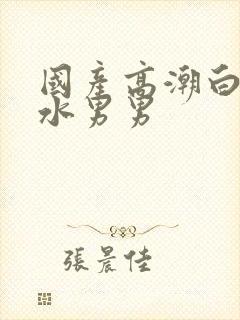 國產高潮白
水男男
張晨佳